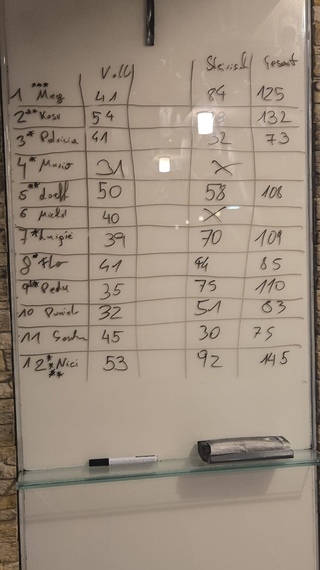 Voll Gesamt
1 *** Meg 41 84 125
2 ** 54 132
3 * Patricia 41 32 73
4 * Mario 31 X
5 ** 50 58 108
6 40 X
7 * Luigi 39 70 109
8 * Flo 41 44 85
9 ** 35 75 110
10 Daniel 32 51 83
11 45 30 75
12 * Nici 53 92 145
* **